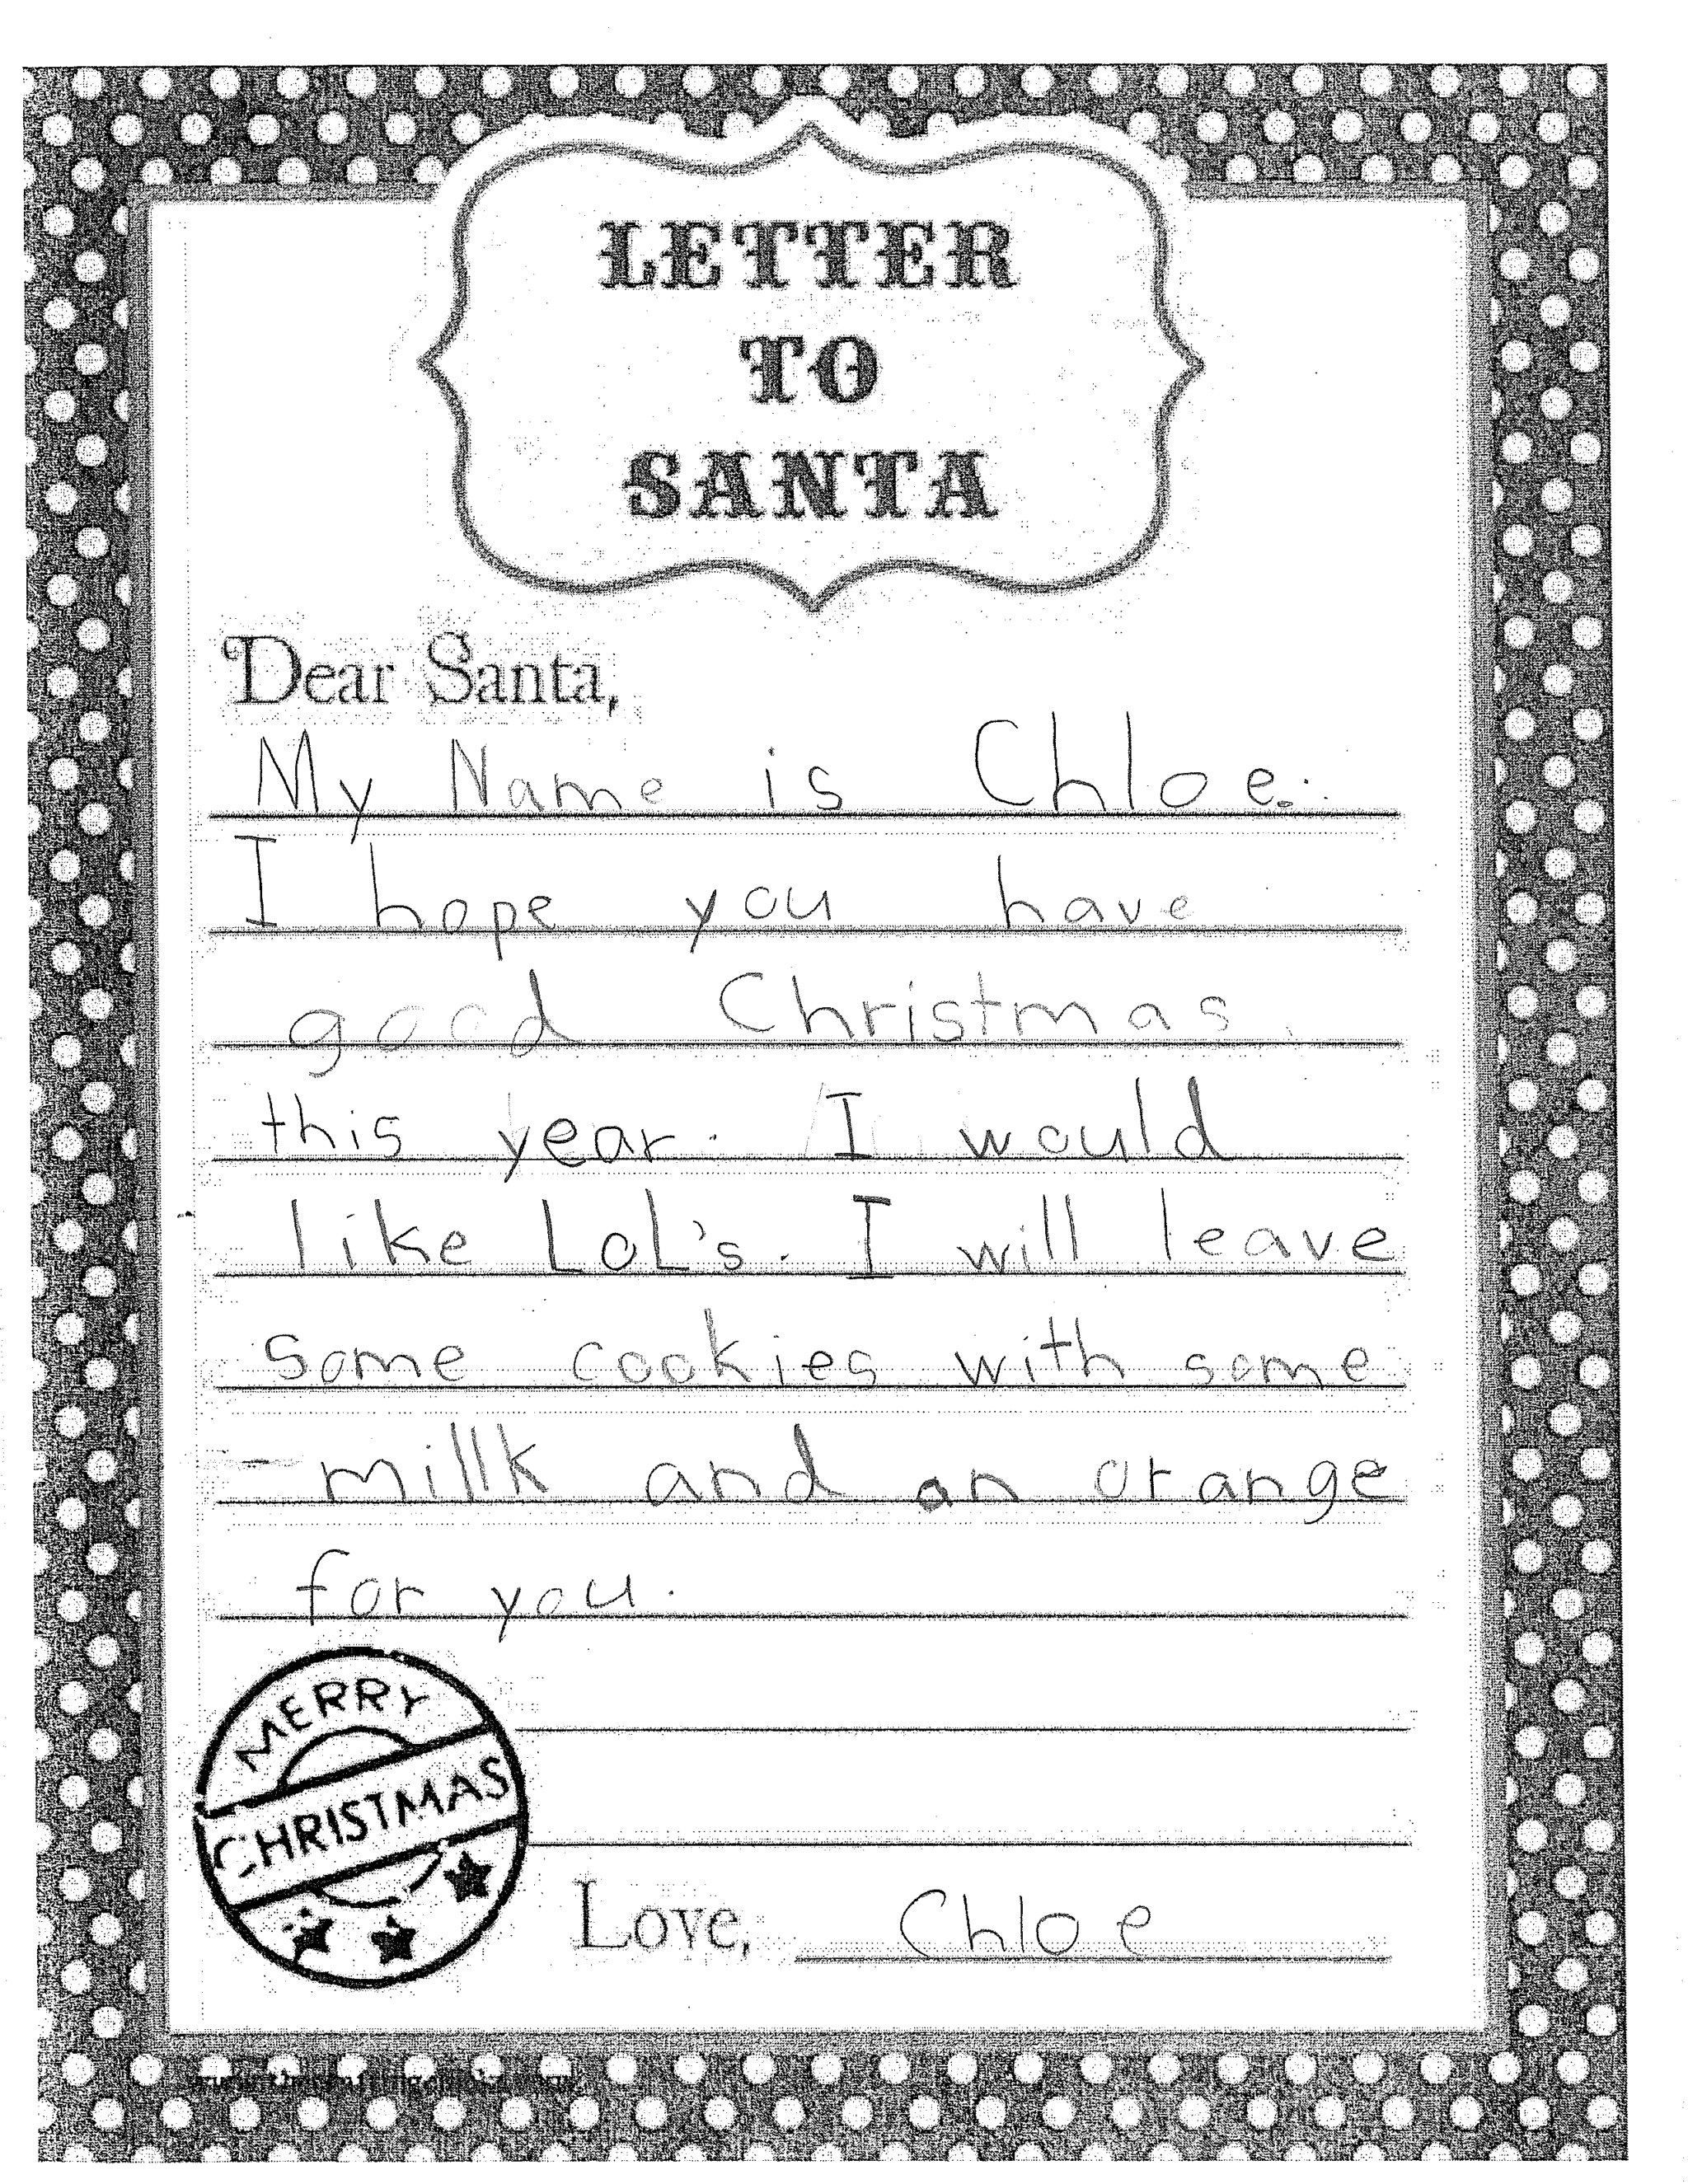 LETTER
TO
SANTA
Dear Santa,
My Name is Chloe.
I hope you have
good Christmas
this year. I would
like LoL's. I will leave
some cookies with some
millk and an orange
for you.
MERRY
CHRISTMAS
Love, Chloe